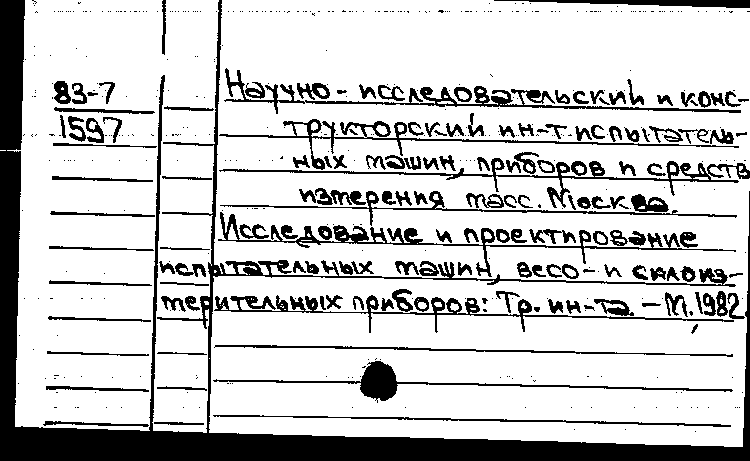 83-7
1597
Научно-исследовательский и конс-
трукторский ин-т испытатель-
ных машин, приборов и средств
измерения масс. Москва.
Исследование и проектирование
испытательных машин, весо- и силоиз-
мерительных приборов: Тр. ин-та. - М., 1982.